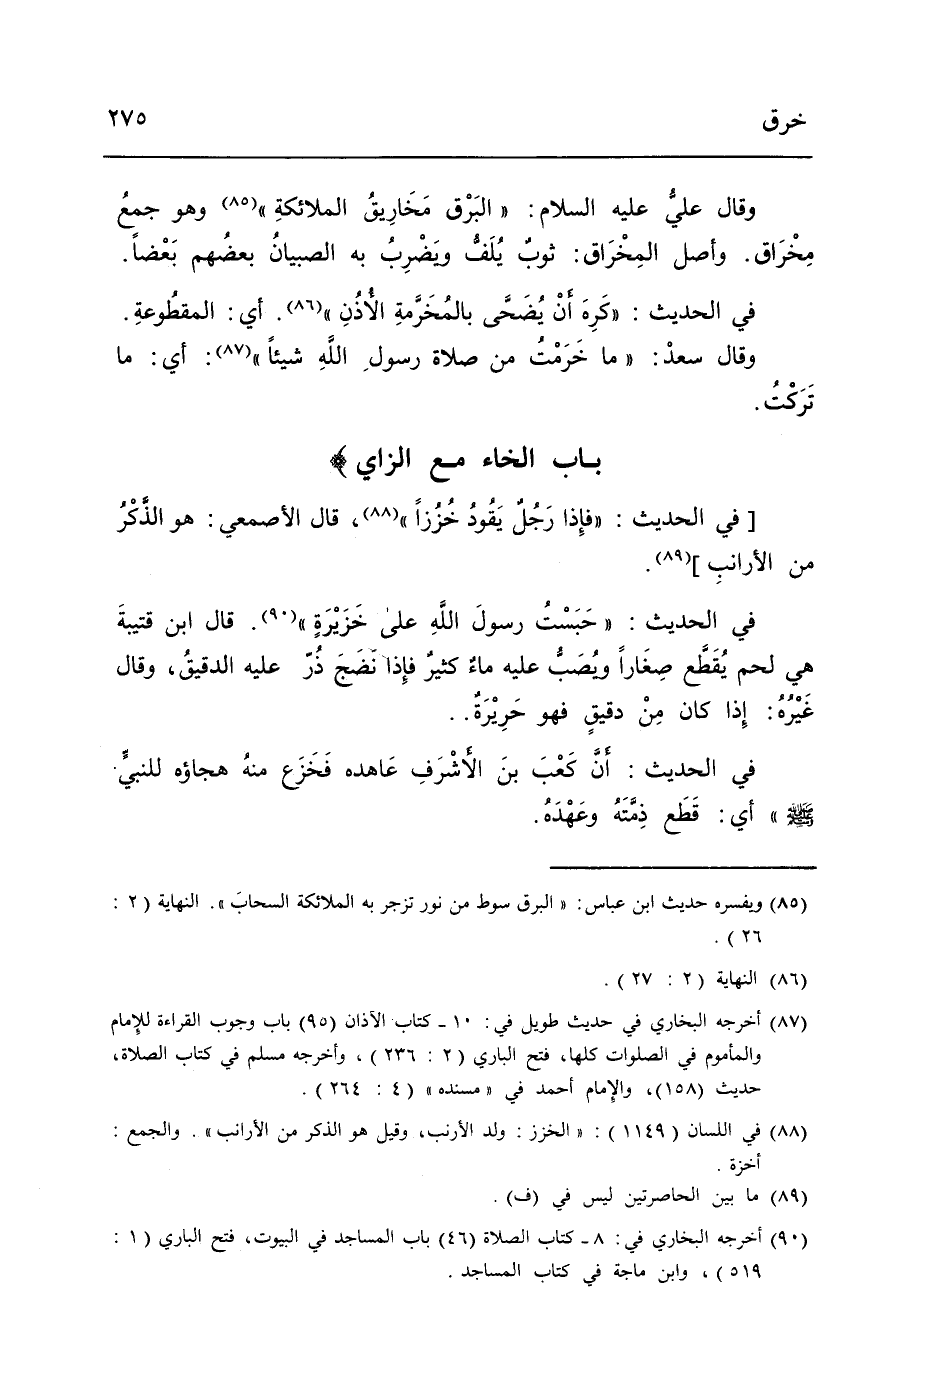 خرق ٢٧٥
وقال عليُّ عليه السلام: « البَرْق مَخَارِيقُ الملائكةِ »(٨٥) وهو جمعُ
مِخْرَاق. وأصل المِخْرَاق: ثوبٌ يُلَفُّ ويَضْرِبُ به الصبيانُ بعضُهم بَعْضاً.
في الحديث : «كَرِهَ أَنْ يُضَحَّى بالمُخَرَّمةِ الأُذُنِ »(٨٦). أي: المقطُوعةِ.
وقال سعدْ: « ما خَرَمْتُ من صلاة رسولِ اللَّهِ شيئاً »(٨٧): أي: ما
تَرَكْتُ.
بـاب الخاء مـع الزاي ﴾
[ في الحديث : «فإِذا رَجُلٌ يَقُودُ خُزُزاً »(٨٨)، قال الأصمعي: هو الذَّكْرُ
من الأرانبِ ](٨٩).
في الحديث : « حَبَسْتُ رسولَ اللَّهِ علىٰ خَزَيْرَةٍ »(٩٠). قال ابن قتيبةَ
هي لحم يُقَطَّع صِغَاراً ويُصَبُّ عليه ماءُ كثيرٌ فإِذا نَضَجَ ذُرّ عليه الدقيقُ، وقال
غَيْرُهُ: إِذا كان مِنْ دقيقٍ فهو حَرِيْرَةٌ. .
في الحديث : أَنَّ كَعْبَ بنَ الأَشْرَفِ عَاهده فَخَزَع منهُ هجاؤه للنبيِّ
ﷺ » أي: قَطَع ذِمَّتَهُ وعَهْدَهُ.
(٨٥) ويفسره حديث ابن عباس: « البرق سوط من نور تزجر به الملائكة السحابَ ». النهاية ( ٢ :
٢٦ ) .
(٨٦) النهاية ( ٢ : ٢٧ ) .
(٨٧) أخرجه البخاري في حديث طويل في: ١٠ ـ كتاب الأذان (٩٥) باب وجوب القراءة للإمام
والمأموم في الصلوات كلها، فتح الباري ( ٢ : ٢٣٦ ) ، وأخرجه مسلم في كتاب الصلاة،
حديث (١٥٨)، والإمام أحمد في « مسنده » ( ٤ : ٢٦٤ ) .
(٨٨) في اللسان ( ١١٤٩ ) : « الخزز : ولد الأرنب، وقيل هو الذكر من الأرانب» . والجمع :
أخزة .
(٨٩) ما بين الحاصرتين ليس في (ف) .
(٩٠) أخرجه البخاري في: ٨ ـ كتاب الصلاة (٤٦) باب المساجد في البيوت، فتح الباري ( ١ :
٥١٩ ) ، وابن ماجة في كتاب المساجد .